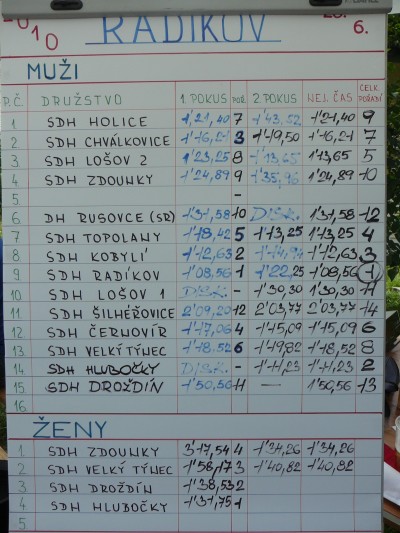 2010 RADÍKOV 26. 6.
MUŽI
P.Č. DRUŽSTVO 1 POKUS POŘ. 2. POKUS NEJ. ČAS CELK. POŘADÍ
1 SDH HOLICE 1'21,40 7 1'43,52 1'21,40 9
2 SDH CHVÁLKOVICE 1'16,21 3 1'19,50 1'16,21 7
3 SDH LOŠOV 2 1'23,25 8 1'13,65 1'13,65 5
4 SDH ZDOUNKY 1'24,89 9 1'35,96 1'24,89 10
5. -
6 DH RUSOVCE (SR) 1'31,58 10 DISK. 1'31,58 12
7 SDH TOPOLANY 1'18,42 5 1'13,25 1'13,25 4
8 SDH KOBYLÍ 1'12,63 2 1'14,94 1'12,63 3
9 SDH RADÍKOV 1'08,56 1 1'22,25 1'08,56 1
10 SDH LOŠOV 1 DISK. - 1'30,30 1'30,30 11
11 SDH ŠILHEŘOVICE 2'09,20 12 2'03,77 2'03,77 14
12 SDH ČERNOVÍR 1'17,06 4 1'15,09 1'15,09 6
13 SDH VELKÝ TÝNEC 1'18,52 6 1'19,82 1'18,52 8
14 SDH HLUBOČKY DISK. - 1'11,23 1'11,23 2
15 SDH DROŽDÍN 1'50,56 11 — 1'50,56 13
16.
ŽENY
1. SDH ZDOUNKY 3'17,54 4 1'34,26 1'34,26
2 SDH VELKÝ TÝNEC 1'58,17 3 1'40,82 1'40,82
3 SDH DROŽDÍN 1'38,53 2
4 SDH HLUBOČKY 1'31,75 1
5.